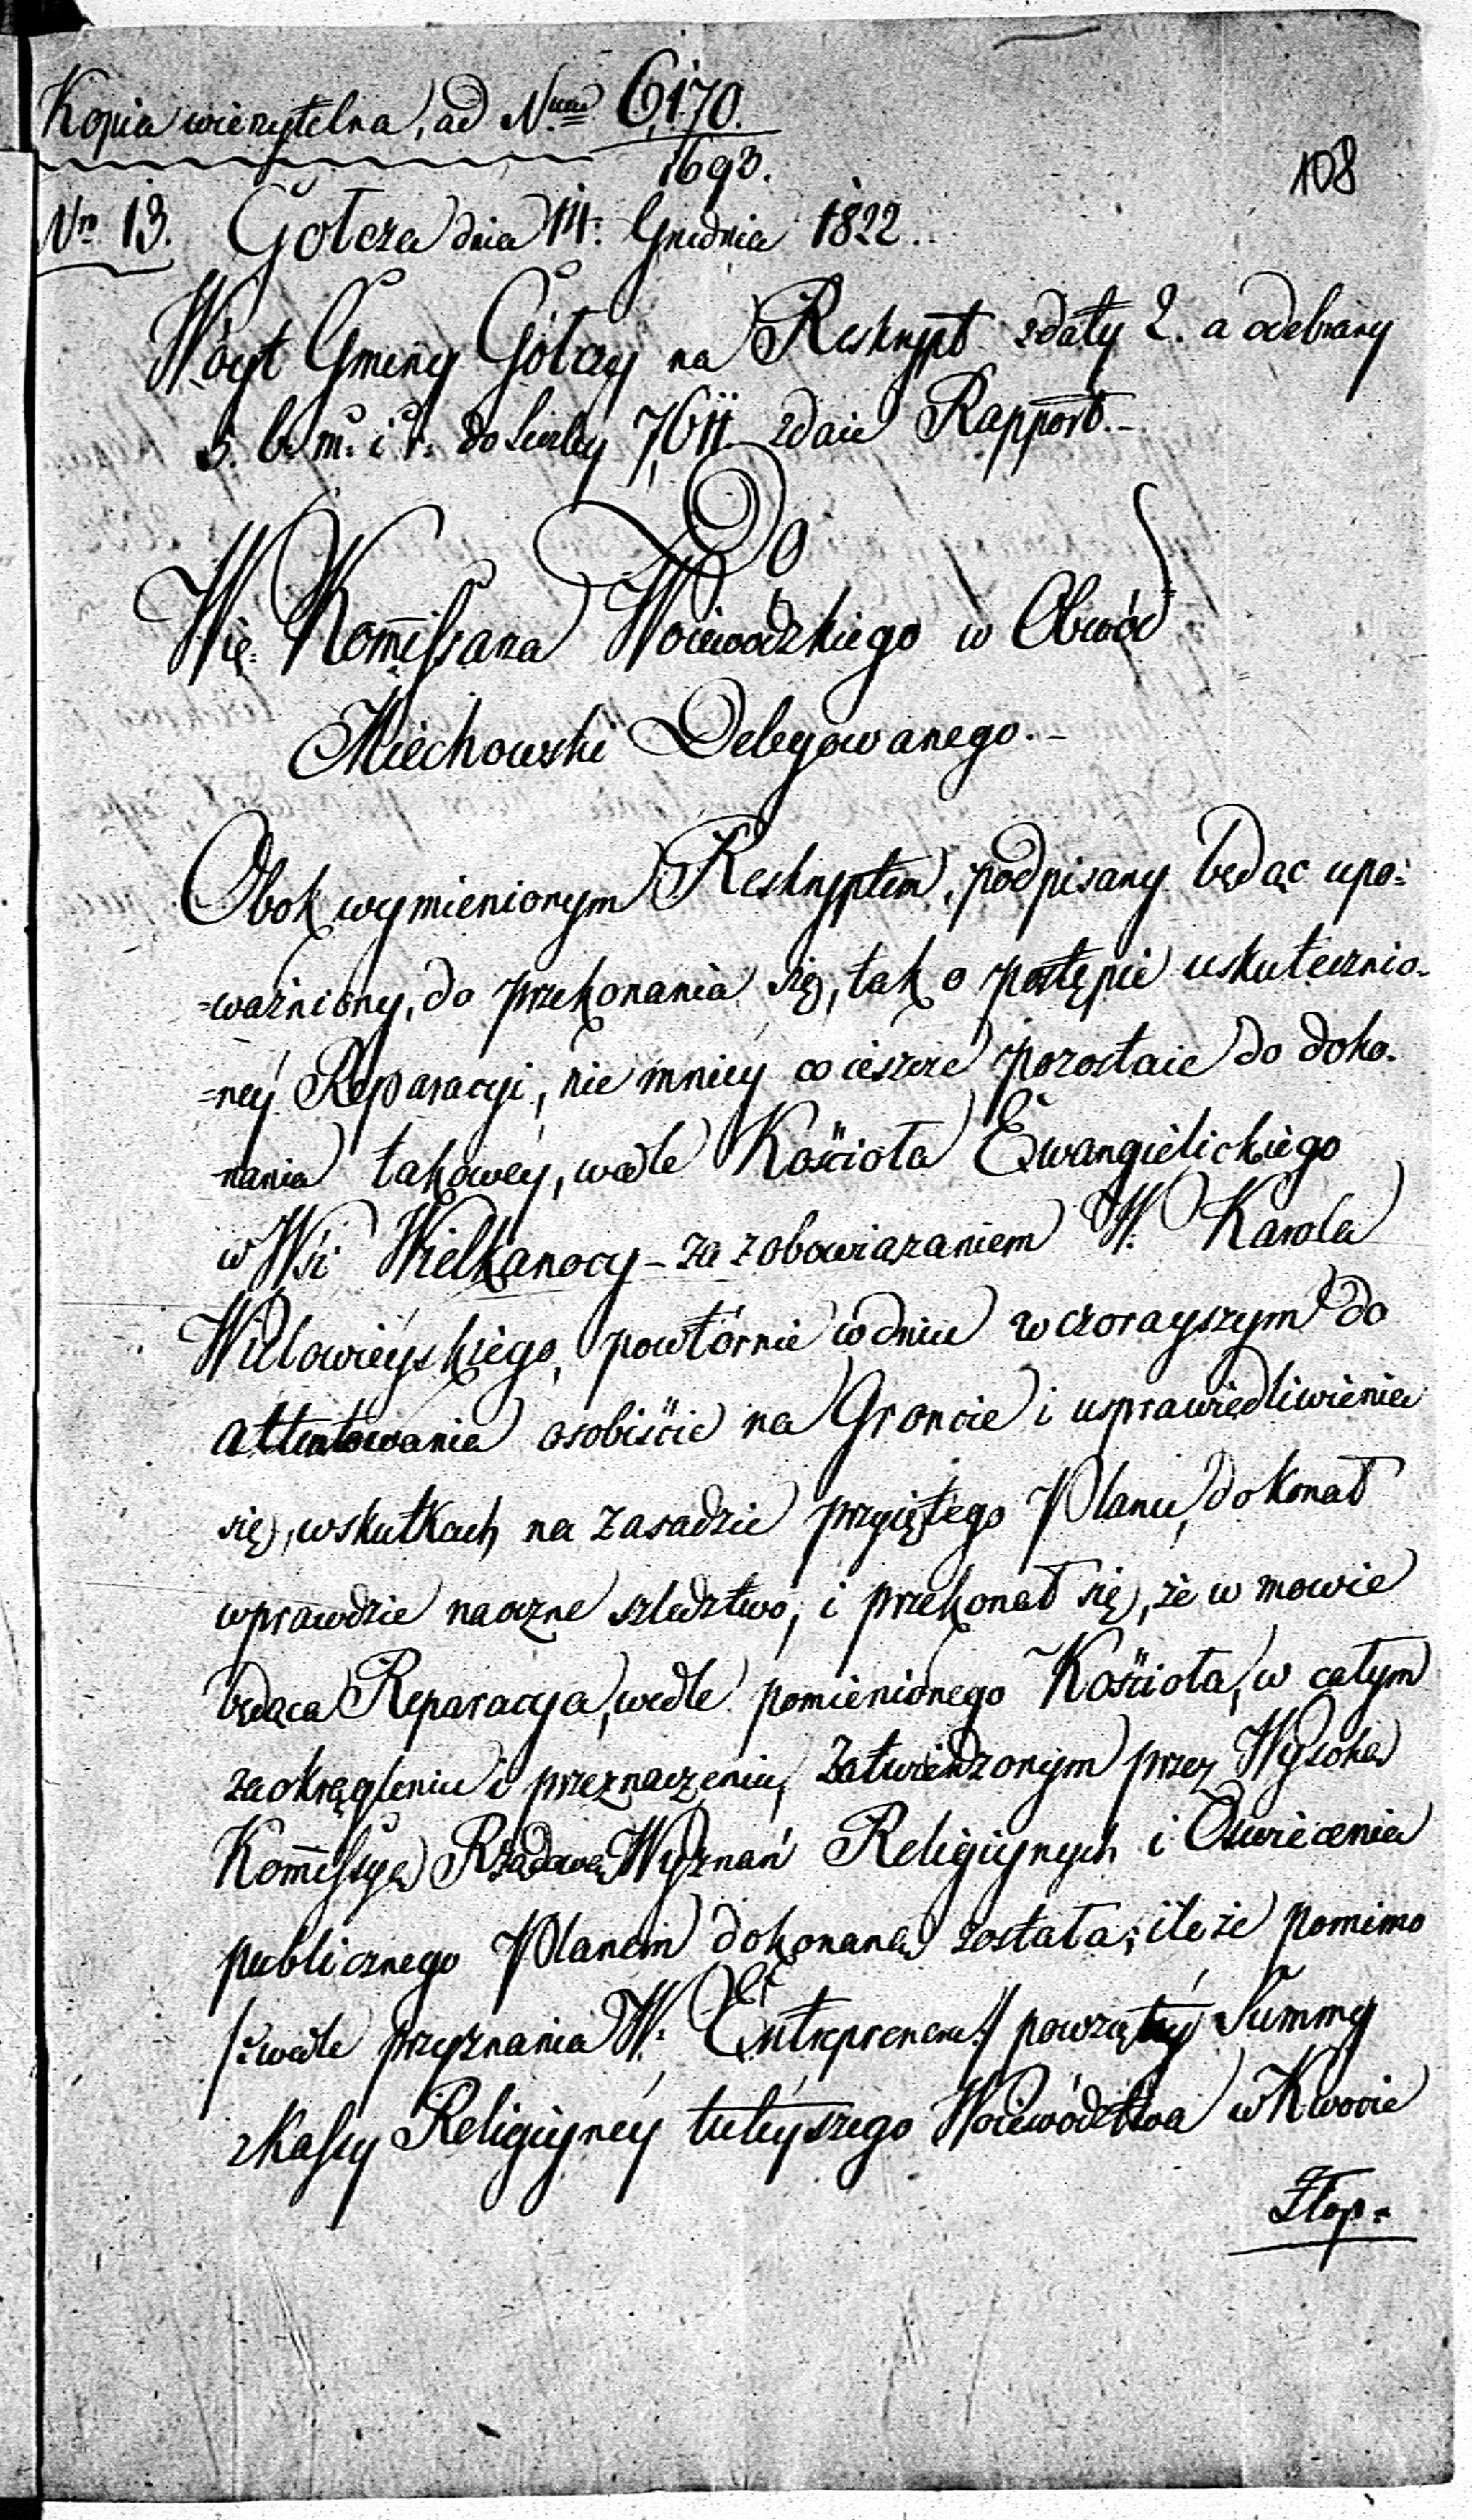 Kopia wierzytelna, ad Num 6,170.
1693.
108
Nro 13. Gołcza dnia 14. Grudnia 1822.
Wóyt Gminy Gołczy na Reskrypt zdaty 2. a odebrany
5. b. m. i r. do Liczby 7,611. zdaie Rapport.-
Do
Kommissarza Woiewódzkiego w Obwód
Miechowski Delegowanego.-
Obok wymienionym Reskryptem, podpisany będąc upo=
=ważniony, do przekonania się, tak o postępie uskutecznio-
=néy Reparacyi, nie mniéy co ieszcze pozostaie do doko-
-nania takowéy, wedle Kościoła Ewangielickiego
w Wsi Wielkanocy - za zobowiązaniem W. Karola
Wielowieyskiego, powtórnie w dniu wczorayszym do
attentowania osobiście na Groncie i usprawiedliwienia
się, w skutkach na zasadzie przyiętego Planu, dokonał
wprawdzie naoczne szledztwo, i przekonał się, że w mowie
będąca Reparacya, wedle pomienionego Kościoła, w całym
zaokrągleniu i przeznaczeniu, zatwierdzonym przez Wysoką
Kommissyą Rządową Wyznań Religiynych i Oswiecenia
publicznego Planem dokonaną została; ile że pomimo
/: wedle przyznania W. Entreprenera :/ powziętéy Summy
z Kassy Religiynéy tuteyszego Woiewództwa w Kwocie
Złop.